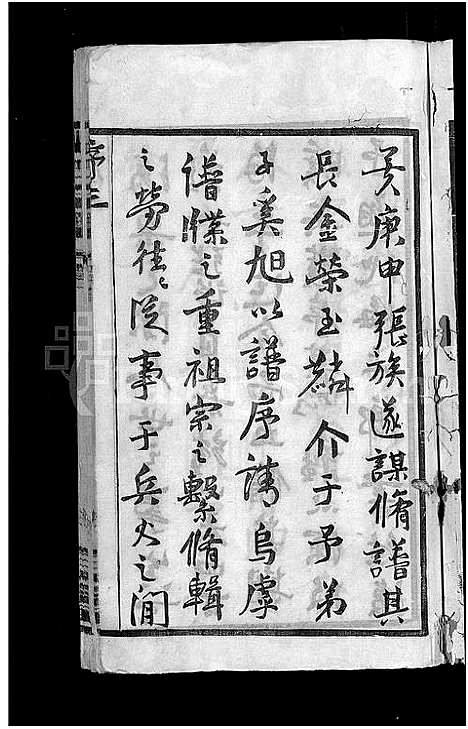 矣庚申張族遂謀脩譜其
長金榮玉麟介于予弟
子奚旭以譜序請烏虖
譜牒之重祖宗之繫脩輯
之勞往〻從事于兵火之間
序三